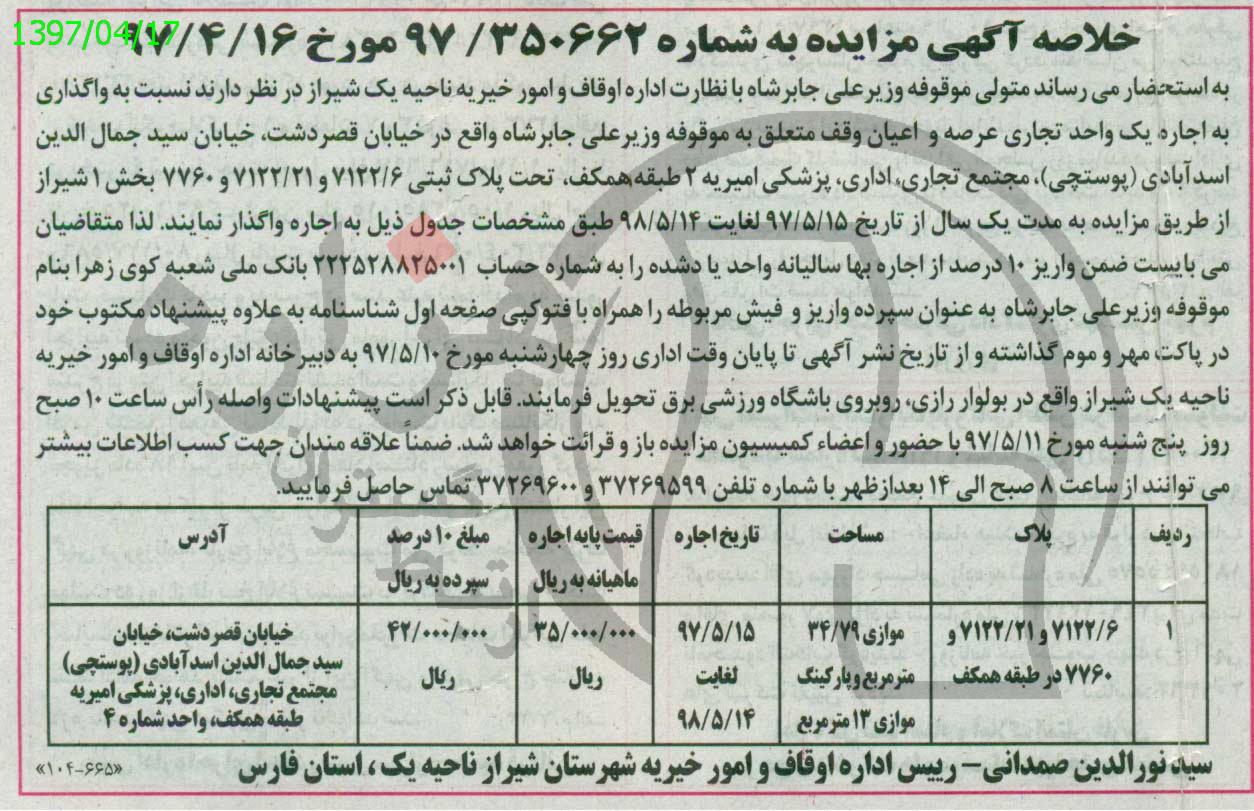 1397/04/17
خلاصه آگهی مزایده به شماره ۹۷/۳۵۰۶۶۲ مورخ ۹۷/۴/۱۶
به استحضار می رساند متولی موقوفه وزیرعلی جابرشاه با نظارت اداره اوقاف و امور خیریه ناحیه یک شیراز در نظر دارند نسبت به واگذاری
به اجاره یک واحد تجاری عرصه و اعیان وقف متعلق به موقوفه وزیرعلی جابرشاه واقع در خیابان قصردشت، خیابان سید جمال الدین
اسدآبادی (پوستچی)، مجتمع تجاری، اداری، پزشکی امیریه ۲ طبقه همکف، تحت پلاک ثبتی ۷۱۲۲/۶ و ۷۱۲۲/۲۱ و ۷۷۶۰ بخش ۱ شیراز
از طریق مزایده به مدت یک سال از تاریخ ۹۷/۵/۱۵ لغایت ۹۸/۵/۱۴ طبق مشخصات جدول ذیل به اجاره واگذار نمایند. لذا متقاضیان
می بایست ضمن واریز ۱۰ درصد از اجاره بها سالیانه واحد یا دشده را به شماره حساب ۲۲۲۵۲۸۸۲۵۰۰۱ بانک ملی شعبه کوی زهرا بنام
موقوفه وزیرعلی جابرشاه به عنوان سپرده واریز و فیش مربوطه را همراه با فتوکپی صفحه اول شناسنامه به علاوه پیشنهاد مکتوب خود
در پاکت مهر و موم گذاشته و از تاریخ نشر آگهی تا پایان وقت اداری روز چهارشنبه مورخ ۹۷/۵/۱۰ به دبیرخانه اداره اوقاف و امور خیریه
ناحیه یک شیراز واقع در بولوار رازی، روبروی باشگاه ورزشی برق تحویل فرمایند. قابل ذکر است پیشنهادات واصله رأس ساعت ۱۰ صبح
روز پنج شنبه مورخ ۹۷/۵/۱۱ با حضور و اعضاء کمیسیون مزایده باز و قرائت خواهد شد. ضمناً علاقه مندان جهت کسب اطلاعات بیشتر
می توانند از ساعت ۸ صبح الی ۱۴ بعدازظهر با شماره تلفن ۳۷۲۶۹۵۹۹ و ۳۷۲۶۹۶۰۰ تماس حاصل فرمایید.
ردیف پلاک مساحت تاریخ اجاره قیمت پایه اجاره مبلغ ۱۰ درصد آدرس
ماهیانه به ریال سپرده به ریال
۱ ۷۱۲۲/۶ و ۷۱۲۲/۲۱ و موازی ۳۴/۷۹ ۹۷/۵/۱۵ ۳۵/۰۰۰/۰۰۰ ۴۲/۰۰۰/۰۰۰ خیابان قصردشت، خیابان
۷۷۶۰ در طبقه همکف مترمربع و پارکینگ لغایت ریال ریال سید جمال الدین اسدآبادی (پوستچی)
مجتمع تجاری، اداری، پزشکی امیریه
موازی ۱۳ مترمربع ۹۸/۵/۱۴ طبقه همکف، واحد شماره ۴
سید نورالدین صمدانی – رییس اداره اوقاف و امور خیریه شهرستان شیراز ناحیه یک، استان فارس «۱۰۴-۶۶۵»